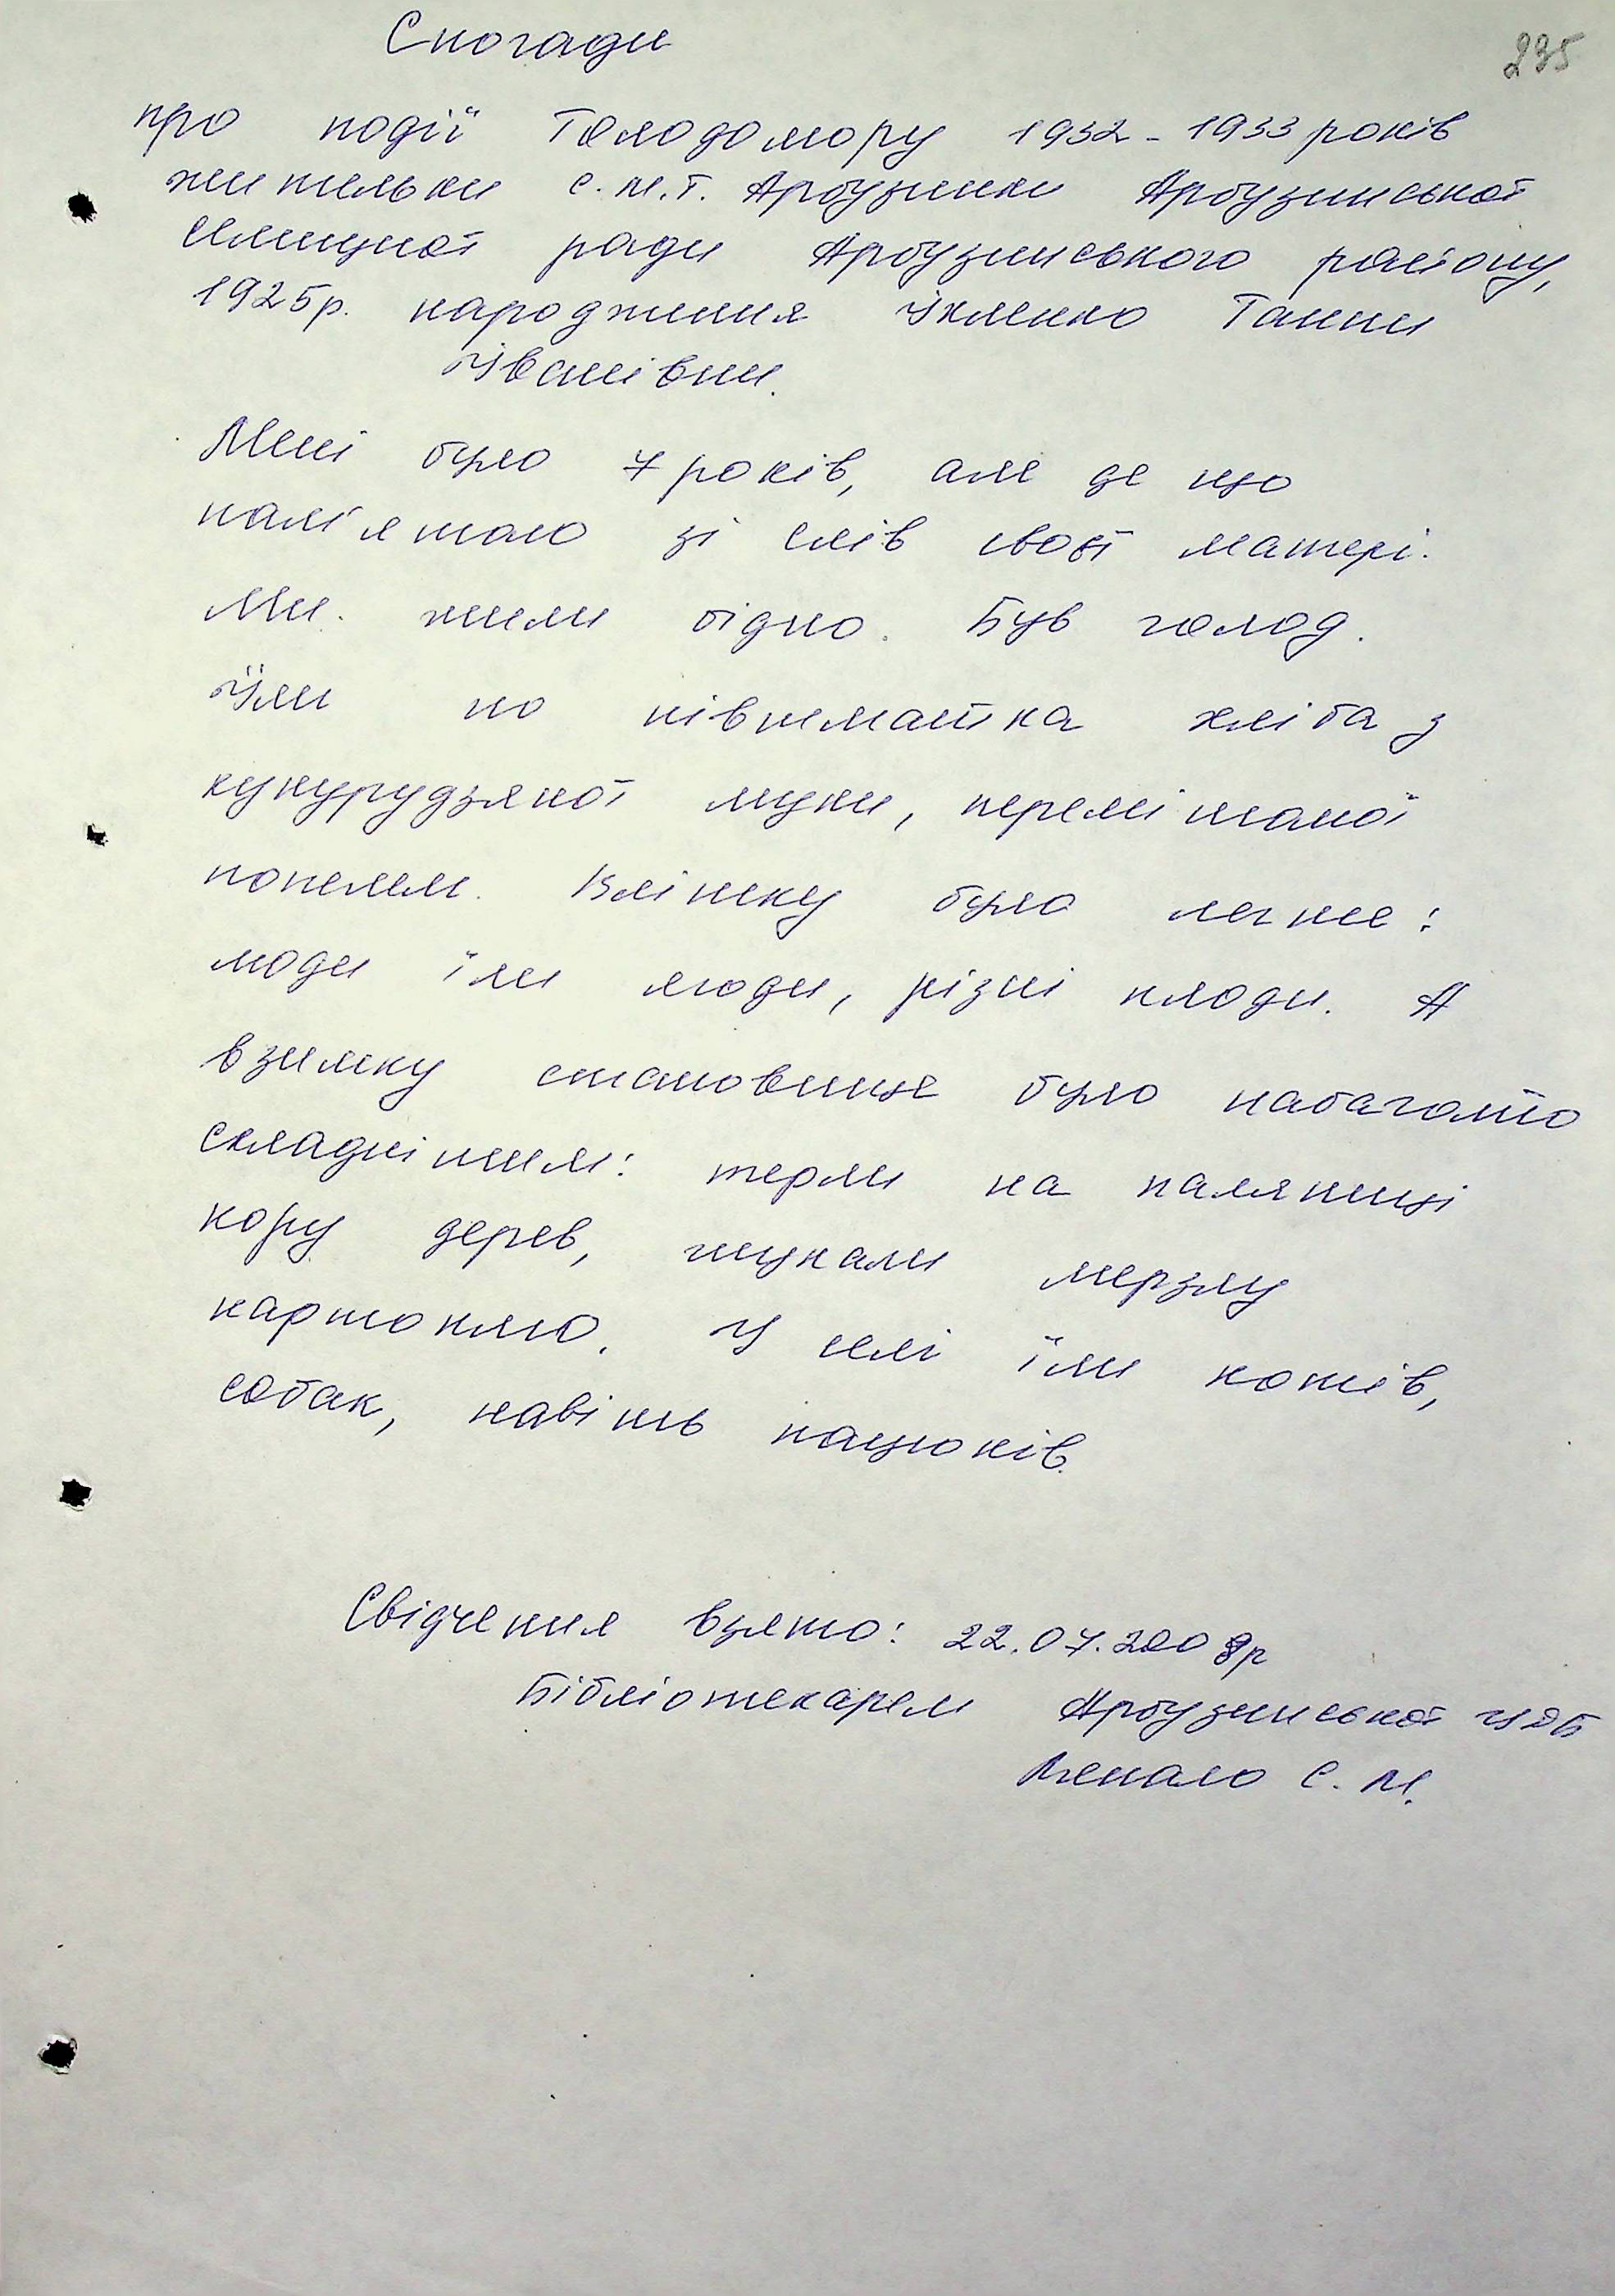 Спогади
235
про події Голодомору 1932-1933 років
жительки с.м.т. Арбузинки Арбузинської
селищної ради Арбузинського району,
1925р. народження Ганни
Іванівни.
Мені було 7 років, але де що
пам'ятаю зі слів своєї матері.
Ми жили бідно. Був голод.
Їли по півшматка хліба з
кукурудзяної муки, перемішаної
попелем. Влітку було легше:
люди їли ягоди, різні плоди. А
взимку становище було набагато
складнішим: терли на паляниці
кору дерев, шукали мерзлу
картоплю. У селі їли котів,
собак, навіть пацюків.
Свідчення взято: 22.07.2008р
Бібліотекарем Арбузинської ЦДБ
С. М.